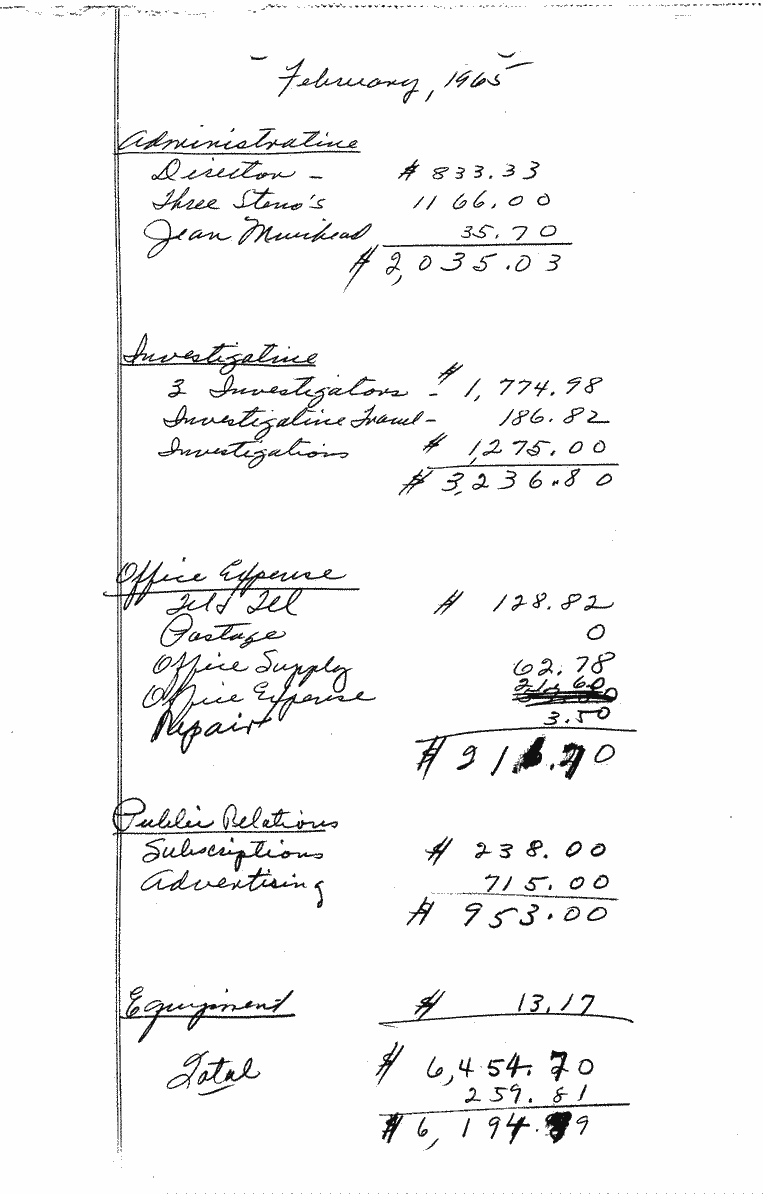 February, 1965
Administrative
Director - $ 833.33
Three Steno's 1166.00
Jean Muirhead 35.70
$ 2,035.03
Investigative
3 Investigators - $ 1,774.98
Investigative Travel - 186.82
Investigations $ 1,275.00
$ 3,236.80
Office Expense
Tel & Tel $ 128.82
Postage 0
Office Supply 62.78
Office Expense 21.60
Repair 3.50
$ 216.70
Public Relations
Subscriptions $ 238.00
Advertising 715.00
$ 953.00
Equipment $ 13.17
Total $ 6,454.70
259.81
$ 6,194.89